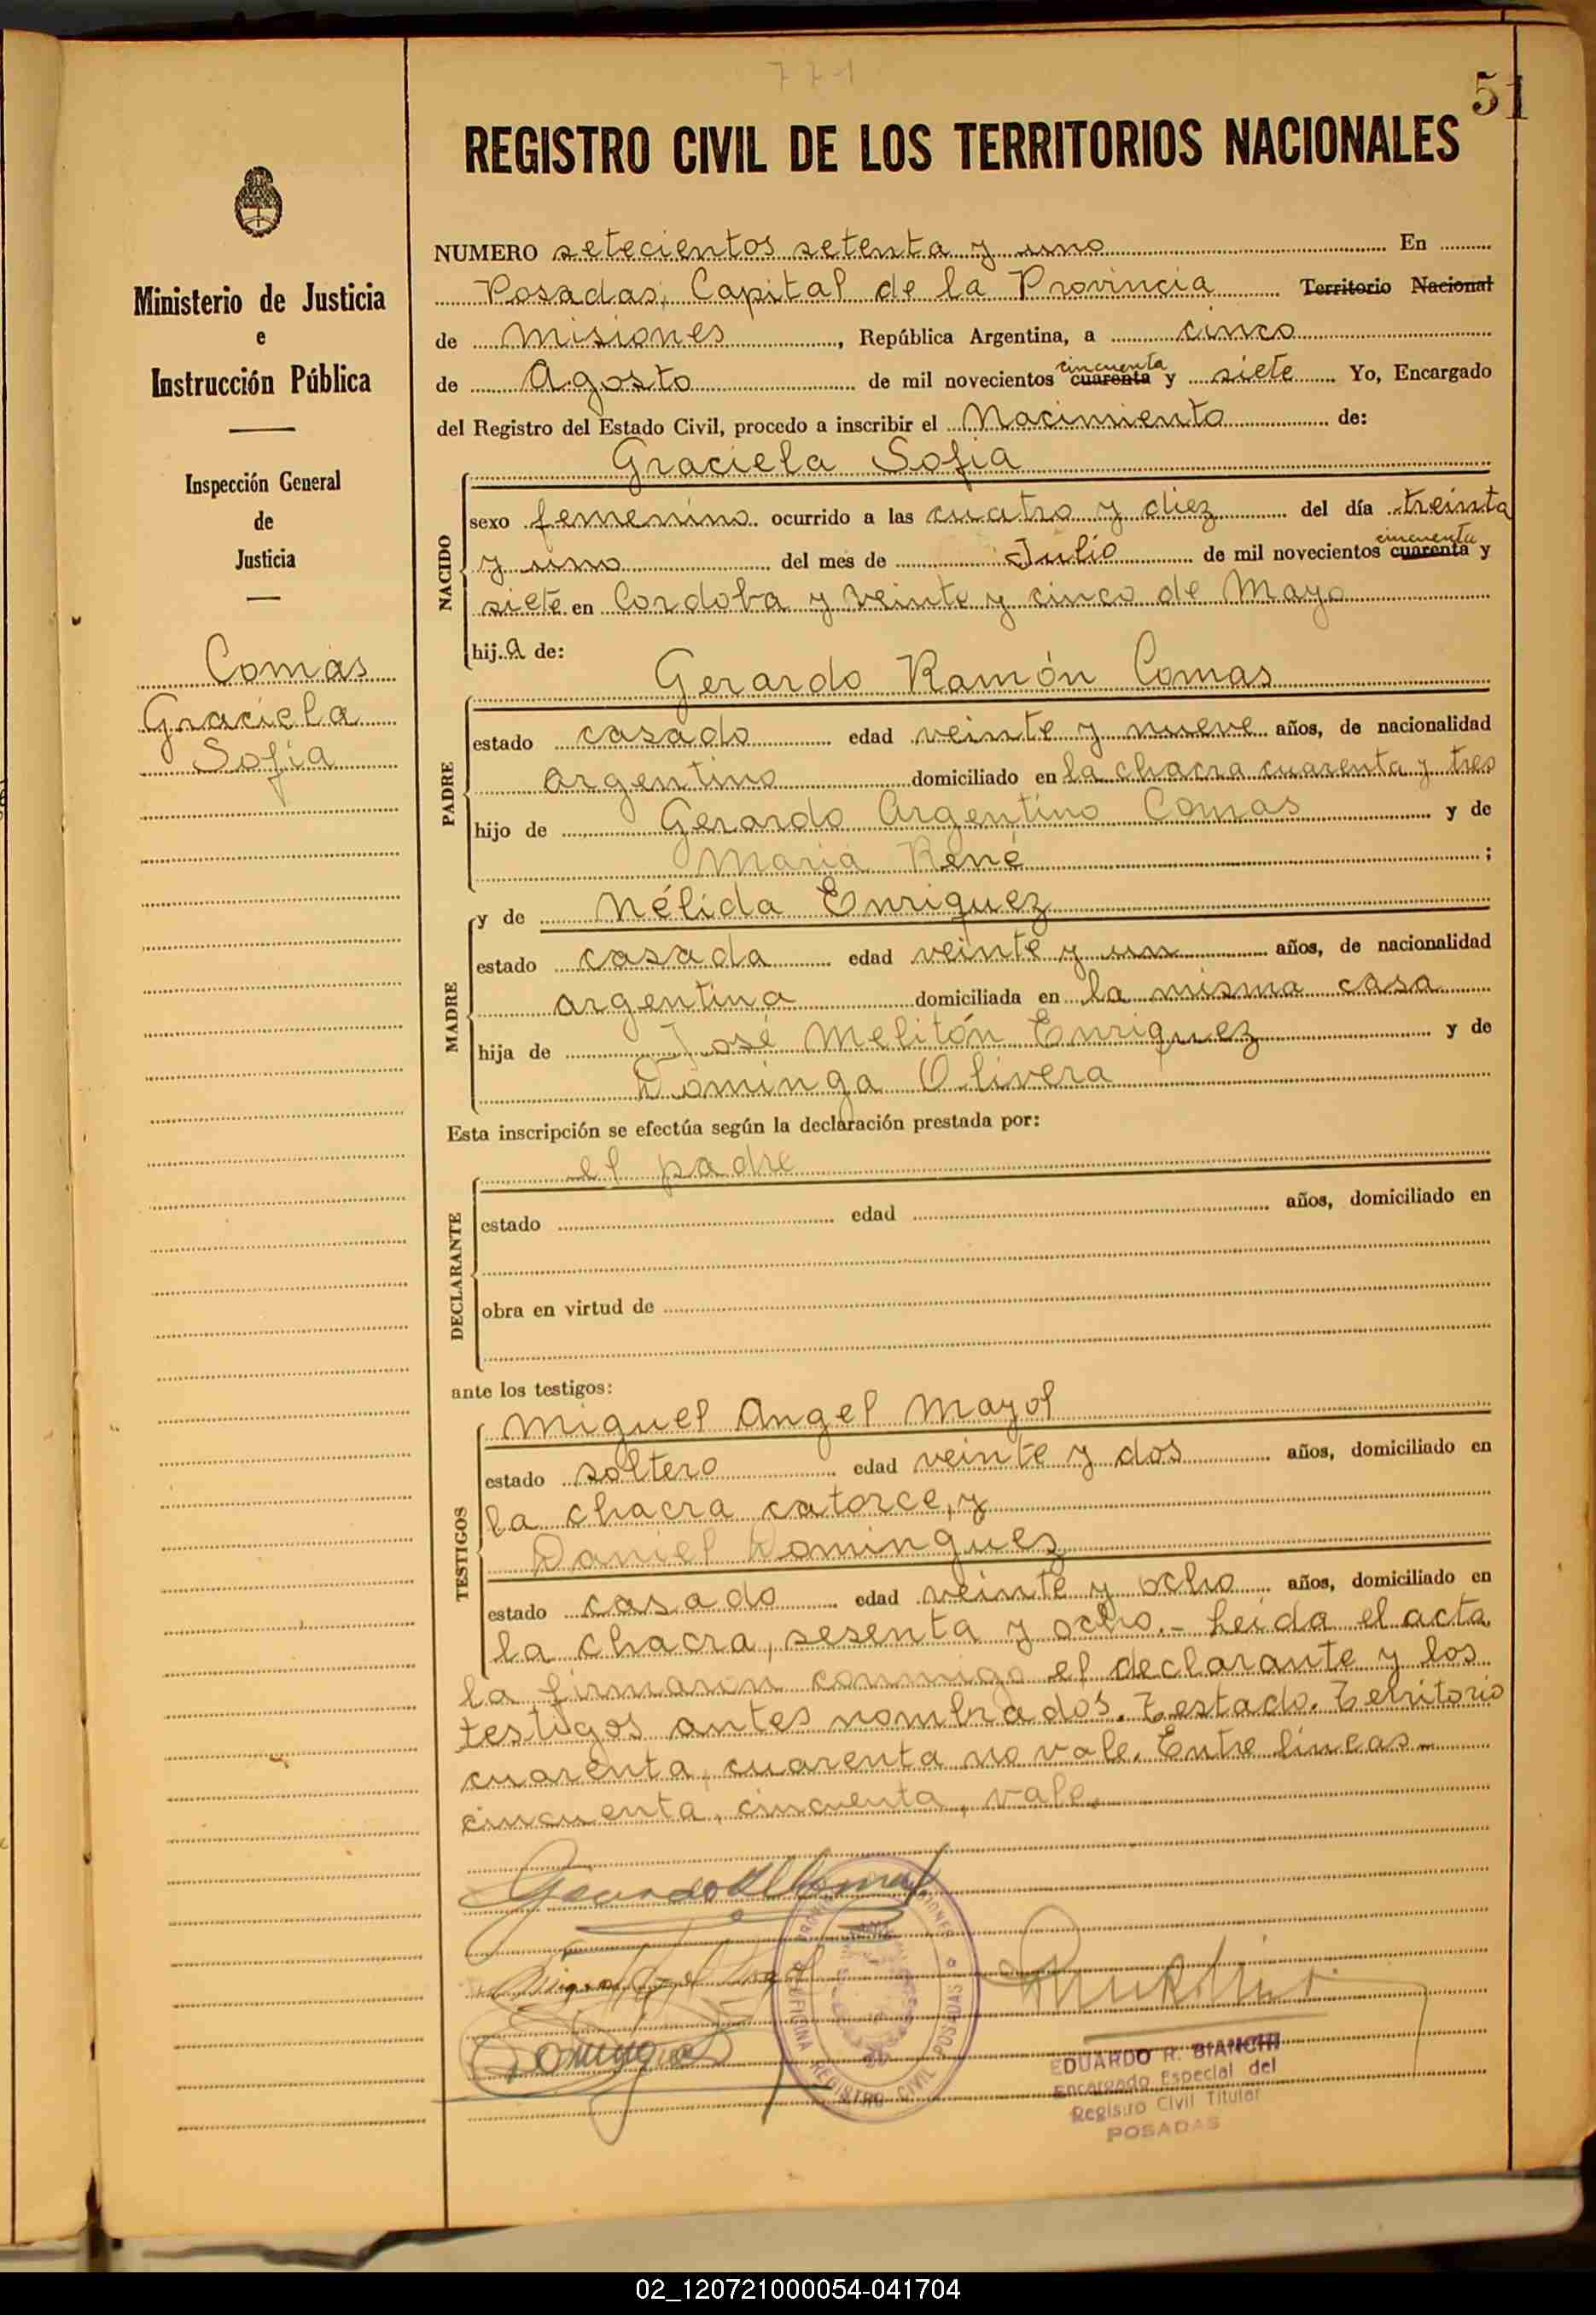 771
51
REGISTRO CIVIL DE LOS TERRITORIOS NACIONALES
Ministerio de Justicia
e
Instrucción Pública
Inspección General
de
Justicia
Comas
Graciela
Sofia
NUMERO setecientos setenta y uno En
Posadas, Capital de la Provincia Territorio Nacional
de Misiones, República Argentina, a cinco
cincuenta
de Agosto de mil novecientos cuarenta y siete Yo, Encargado
del Registro del Estado Civil, procedo a inscribir el Nacimiento de:
Graciela Sofia
NACIDO
sexo femenino ocurrido a las cuatro y diez del día treinta
cincuenta
y uno del mes de Julio de mil novecientos cuarenta y
siete en Cordoba y veinte y cinco de Mayo
hija de:
Gerardo Ramón Comas
PADRE
estado casado edad veinte y nueve años, de nacionalidad
argentino domiciliado en la chacra cuarenta y tres
hijo de Gerardo Argentino Comas y de
Maria René ;
y de Nélida Enriquez
MADRE
estado casada edad veinte y un años, de nacionalidad
argentina domiciliada en la misma casa
hija de José Melitón Enriquez y de
Dominga Olivera
Esta inscripción se efectúa según la declaración prestada por:
el padre
DECLARANTE
estado edad años, domiciliado en
obra en virtud de
ante los testigos:
Miguel Angel Mayol
TESTIGOS
estado soltero edad veinte y dos años, domiciliado en
la chacra catorce, y
Daniel Dominguez
estado casado edad veinte y ocho años, domiciliado en
la chacra, sesenta y ocho.- Leida el acta
la firmaron conmigo el declarante y los
testigos antes nombrados. Testado. Territorio
cuarenta, cuarenta no vale. Entre lineas-
cincuenta, cincuenta, vale.
Gerardo R Comas
Miguel Angel Mayol
Dominguez
OFICINA REGISTRO CIVIL POSADAS
EDUARDO R. BIANCHI
Encargado Especial del
Registro Civil Titular
POSADAS
02_120721000054-041704